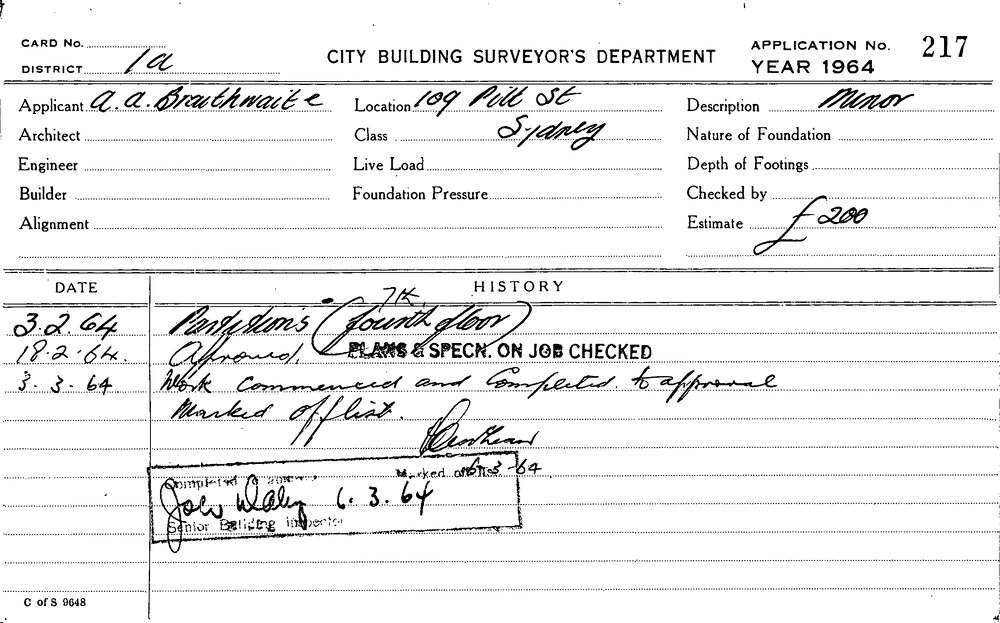 CARD No.
DISTRICT 1a
CITY BUILDING SURVEYOR'S DEPARTMENT
APPLICATION No. 217
YEAR 1964
Applicant A. A. Braithwaite
Location 109 Pitt St
Description Minor
Architect
Class Sydney
Nature of Foundation
Engineer
Live Load
Depth of Footings
Builder
Foundation Pressure
Checked by
Alignment
Estimate £200
DATE HISTORY
7th
3.2.64 Partitions (fourth floor)
18.2.64. Approved, PLANS & SPECN. ON JOB CHECKED
3.3.64 Work commenced and completed to approval
marked off list.
6.3.64
Completed Marked off list
John Daley 6.3.64
Senior Building Inspector
C of S 9648